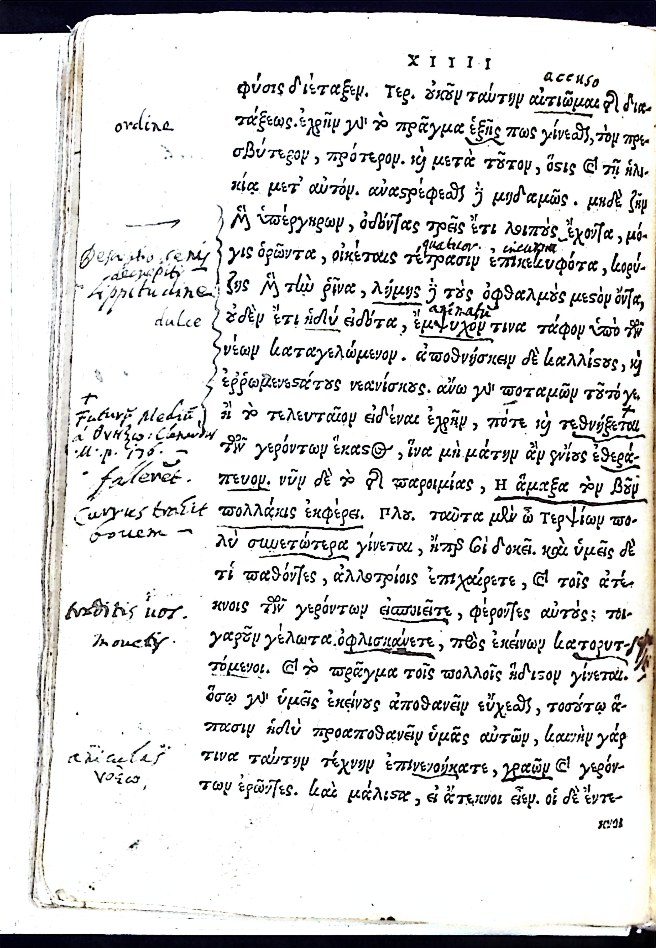 XIIII
accuso
φύσις διέταξεν. Τερ. οὐκοῦν ταύτην αἰτιῶμαι τῆς δια-
ordine
τάξεως. ἐχρῆν γὰρ τὸ πρᾶγμα ἑξῆς πως γίνεσθαι, τὸν πρε-
σβύτερον, πρότερον. καὶ μετὰ τοῦτον, ὅστις καὶ τῇ ἡλι-
κίᾳ μετ' αὐτόν. ἀναστρέφεσθαι δὲ μηδαμῶς. μηδὲ ζῆν
μὲν ὑπέργηρων, ὀδόντας τρεῖς ἔτι λοιποὺς ἔχοντα, μό-
γις ὁρῶντα, οἰκέταις τέτρασιν ἐπικεκυφότα, κορύ-
lippitudine
ζης μὲν τὴν ῥῖνα, λήμης δὲ τοὺς ὀφθαλμοὺς μεστὸν ὄντα,
dulce
οὐδὲν ἔτι ἡδὺ εἰδότα, ἔμψυχόν τινα τάφον ὑπὸ τῶν
νέων καταγελώμενον. ἀποθνήσκειν δὲ καλλίστους, καὶ
ἐῤῥωμενεστάτους νεανίσκους. ἄνω γὰρ ποταμῶν τοῦτό γε.
Futurum Mediu
ἢ τὸ τελευταῖον εἰδέναι ἐχρῆν, πότε καὶ τεθνήξεται
τῶν γερόντων ἕκαστος, ἵνα μὴ μάτην ἂν ἐνίους ἐθερά-
falleret.
πευον. νῦν δὲ τὸ τῆς παροιμίας, Η ἅμαξα τὸν βοῦν
Currus trahit
πολλάκις ἐκφέρει. Πλου. ταῦτα μὲν ὦ Τερψίων πο-
bouem
λὺ συνετώτερα γίνεται, ἤπερ σοὶ δοκεῖ. καὶ ὑμεῖς δὲ
τί παθόντες, ἀλλοτρίοις ἐπιχαίρετε, καὶ τοῖς ἀτέ-
traditis uos.
κνοις τῶν γερόντων εἰσποιεῖτε, φέροντες αὐτούς; τοι-
γαροῦν γέλωτα ὀφλισκάνετε, πρὸς ἐκείνων κατορυτ-
τόμενοι. καὶ τὸ πρᾶγμα τοῖς πολλοῖς ἥδιστον γίνεται.
ὅσῳ γὰρ ὑμεῖς ἐκείνους ἀποθανεῖν εὔχεσθε, τοσούτῳ ἅ-
πασιν ἡδὺ προαποθανεῖν ὑμᾶς αὐτῶν, καινὴν γάρ
τινα ταύτην τέχνην ἐπινενοήκατε, γραῶν καὶ γερόν-
των ἐρῶντες. καὶ μάλιστα, εἰ ἄτεκνοι εἶεν. οἱ δὲ ἔντε-
κνοι